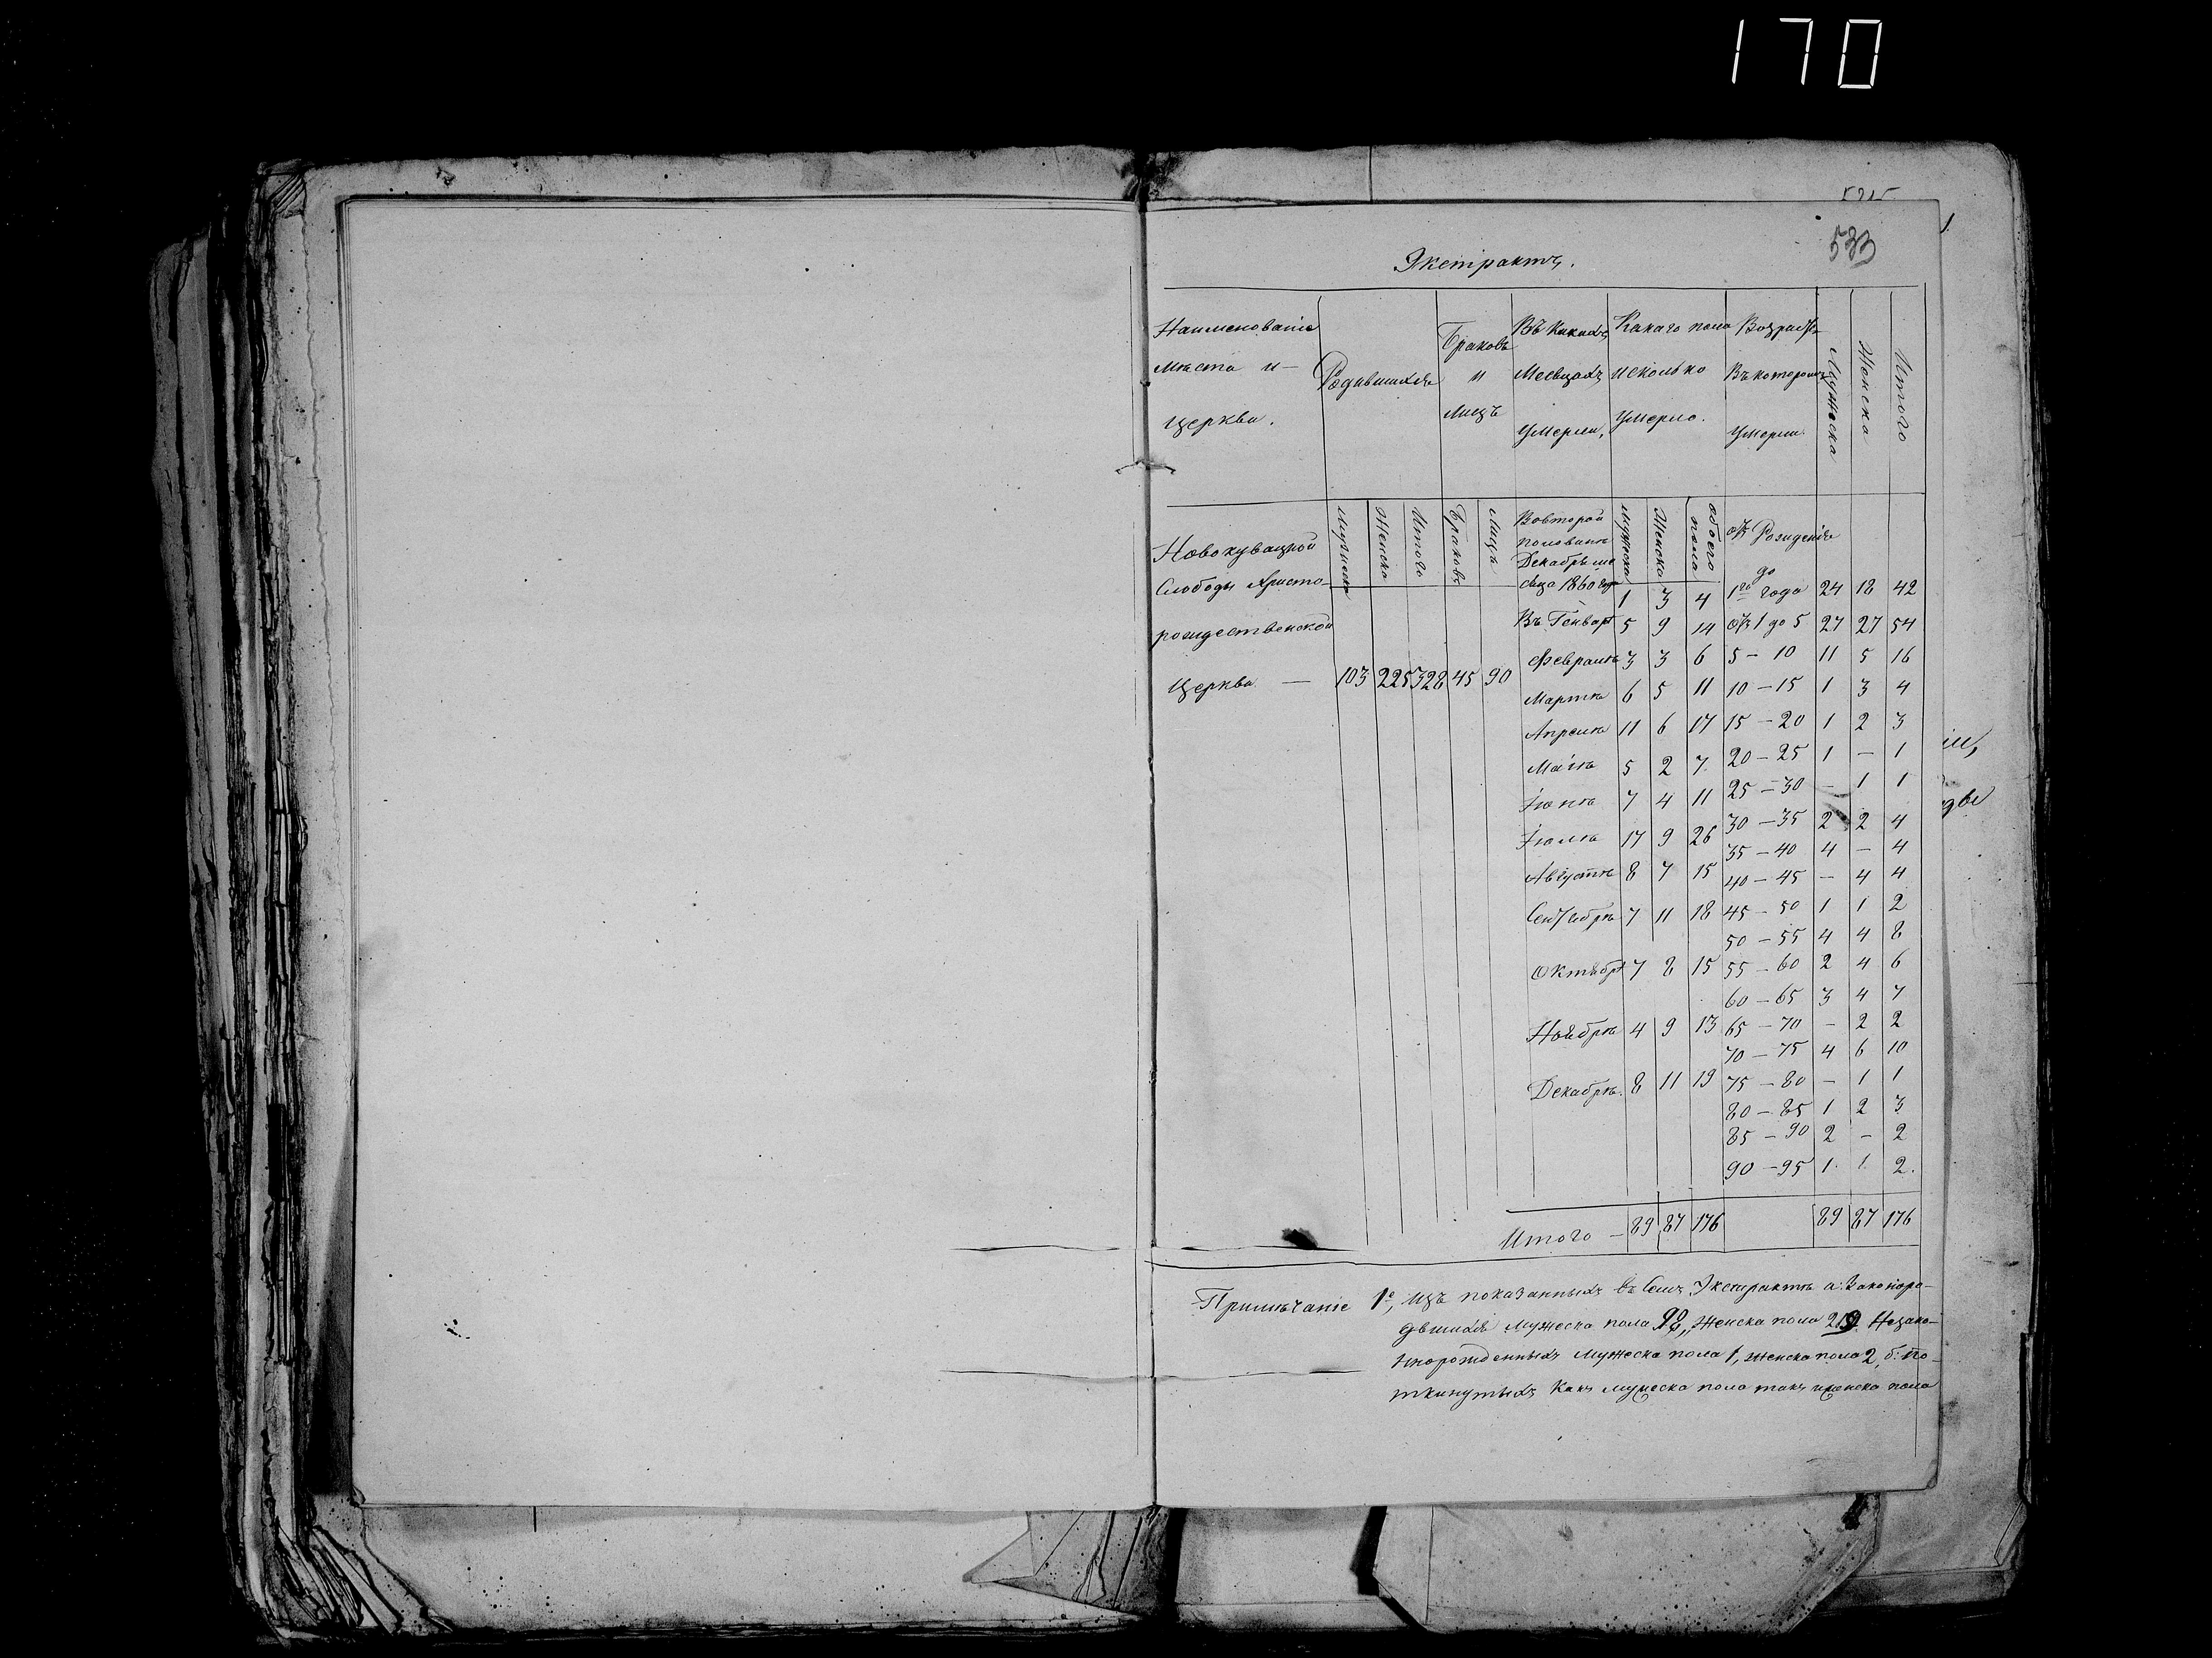 170
533
Экстрактъ.
Наименованіе места и церкви.
Родившихся
Браковъ и лицъ
Въ какихъ месецахъ умерли,
Какаго пола и сколько умерло.
Возрастъ въ которомъ умерли
Мужеска
Женска
Итого
Мужеска
Женска
Итого
Браковъ
Лицъ
Мужеска
Женска
обоего пола
Новокувацкой
Слободы Христо-
рождественской
Церкви — 103 225 328 45 90
Вовторой половинѣ Декабрь месяца 1860 года 1 3 4
Въ Генварѣ 5 9 14
Февралѣ 3 3 6
Мартѣ 6 5 11
Апрелѣ 11 6 17
Маіѣ 5 2 7
Іюнѣ 7 4 11
Іюлѣ 17 9 26
Августѣ 8 7 15
Сентябрѣ 7 11 18
Октябрѣ 7 8 15
Ноябрѣ 4 9 13
Декабрѣ. 8 11 19
отъ Рожденія
до 1го года 24 18 42
отъ 1 до 5 27 27 54
5 – 10 11 5 16
10 – 15 1 3 4
15 – 20 1 2 3
20 – 25 1 – 1
25 – 30 – 1 1
30 – 35 2 2 4
35 – 40 4 – 4
40 – 45 – 4 4
45 – 50 1 1 2
50 – 55 4 4 8
55 – 60 2 4 6
60 – 65 3 4 7
65 – 70 – 2 2
70 – 75 4 6 10
75 – 80 – 1 1
80 – 85 1 2 3
85 – 90 2 – 2
90 – 95 1. 1. 2.
Итого – 89 87 176 89 87 176
Примѣчаніе 1е, Изъ показанныхъ въ семъ Экстрактѣ а: Законоро-
дившихся мужеска пола женска пола Незако-
ннорожденныхъ мужеска пола 1, женска пола 2, б: По-
ткинутыхъ какъ мужеска пола такъ иженска пола